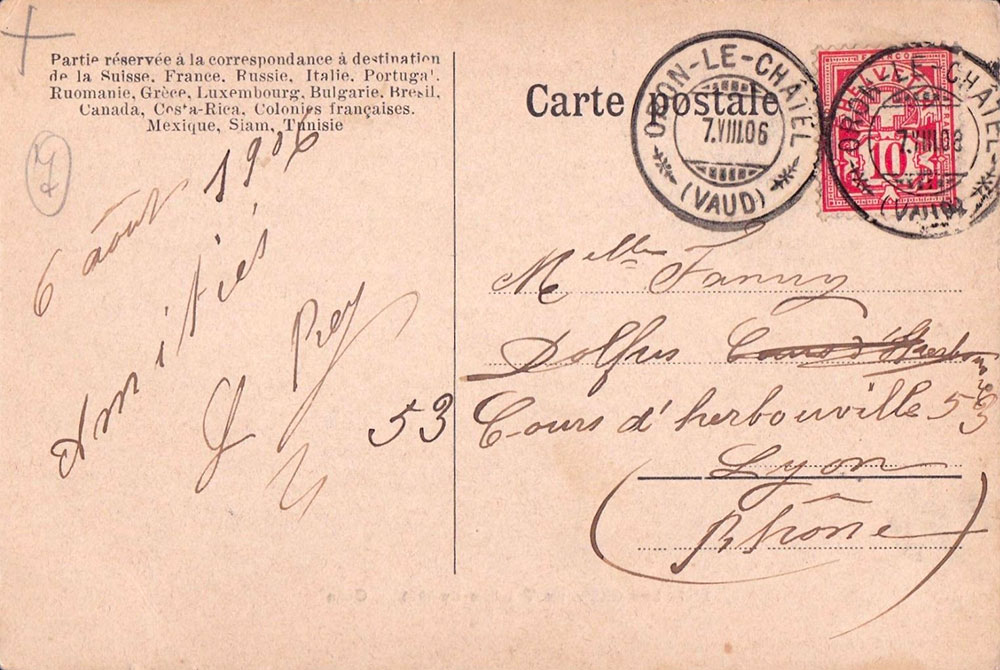 Partie réservée à la correspondance à destination
de la Suisse, France, Russie, Italie, Portugal.
Roumanie, Grèce, Luxembourg, Bulgarie, Bresil,
Canada, Costa-Rica, Colonies françaises.
Mexique, Siam, Tunisie
7
6 août 1906
Amitiés
53
Carte postale
ORON-LE-CHATEL
7.VIII.06
(VAUD)
FRANCO
10
ORON-LE-CHATEL
7.VIII.06
(VAUD)
Melle Fanny
Dolfus
Cours d'herbouville 53
Lyon
(Rhône)